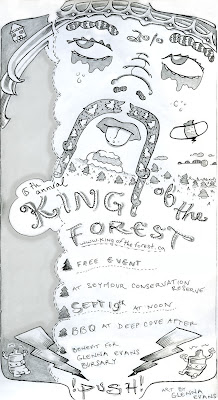 2%
6th annual
KING of the
FOREST
www.king of the forest.ca
FREE EVENT
AT SEYMOUR CONSERVATION
RESERVE
SEPT 19th AT NOON
BBQ AT DEEP COVE AFTER
BENEFIT FOR
GLENNA EVANS
BURSARY
!PUSH!
ART BY
GLENNA
EVANS